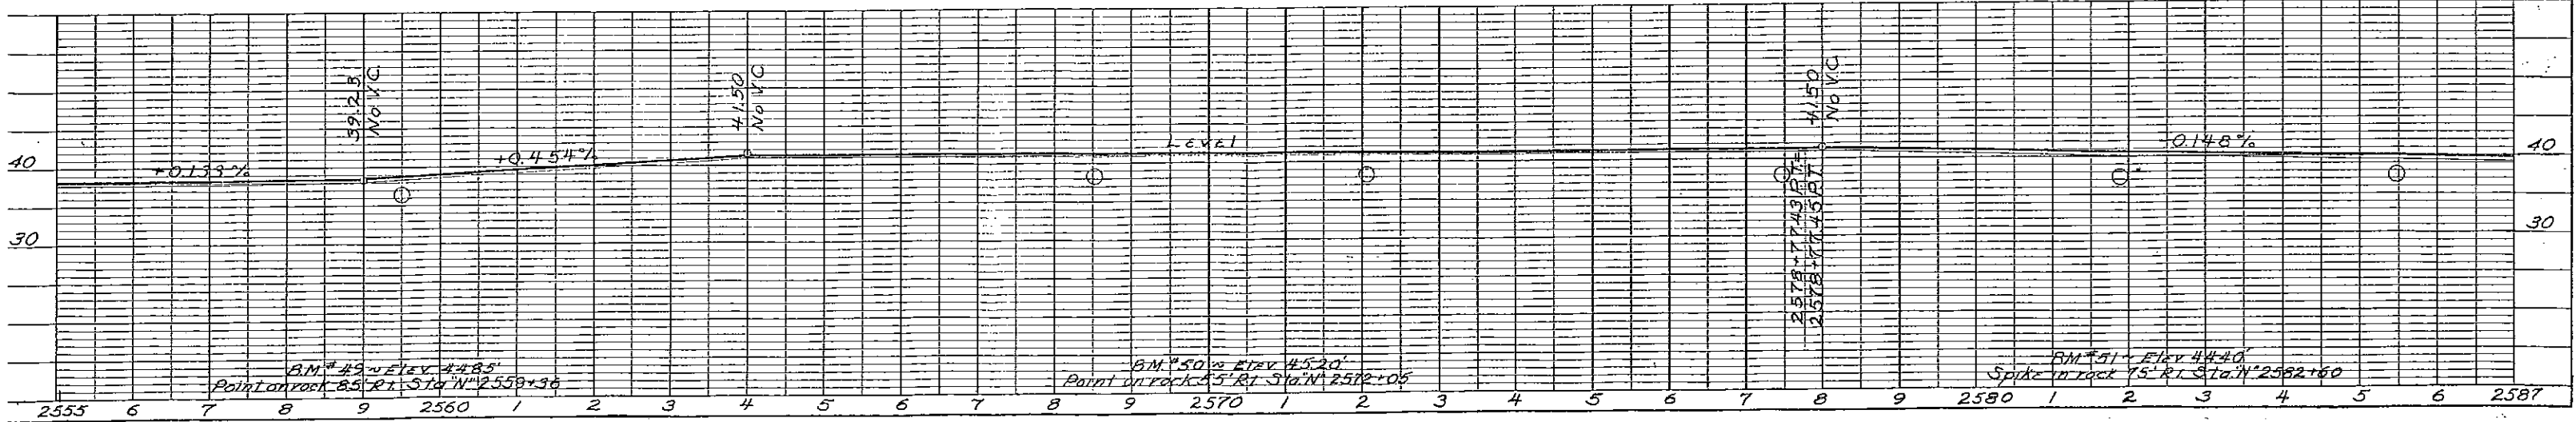 39.23
No V.C.
41.50
No V.C.
41.50
No V.C.
40
+0.454%
Level
-0.148%
40
30
2578+77.45 P.T.
30
B.M. #49 ~ Elev. 44.85'
Point on rock 85' Rt. Sta. "N" 2559+36
B.M. #50 ~ Elev. 45.20'
Point on rock 55' Rt. Sta. "N" 2572+05
B.M. #51 ~ Elev. 44.40'
Spike in rock 75' Rt. Sta. "N" 2582+60
2555 6 7 8 9 2560 1 2 3 4 5 6 7 8 9 2570 1 2 3 4 5 6 7 8 9 2580 1 2 3 4 5 6 2587